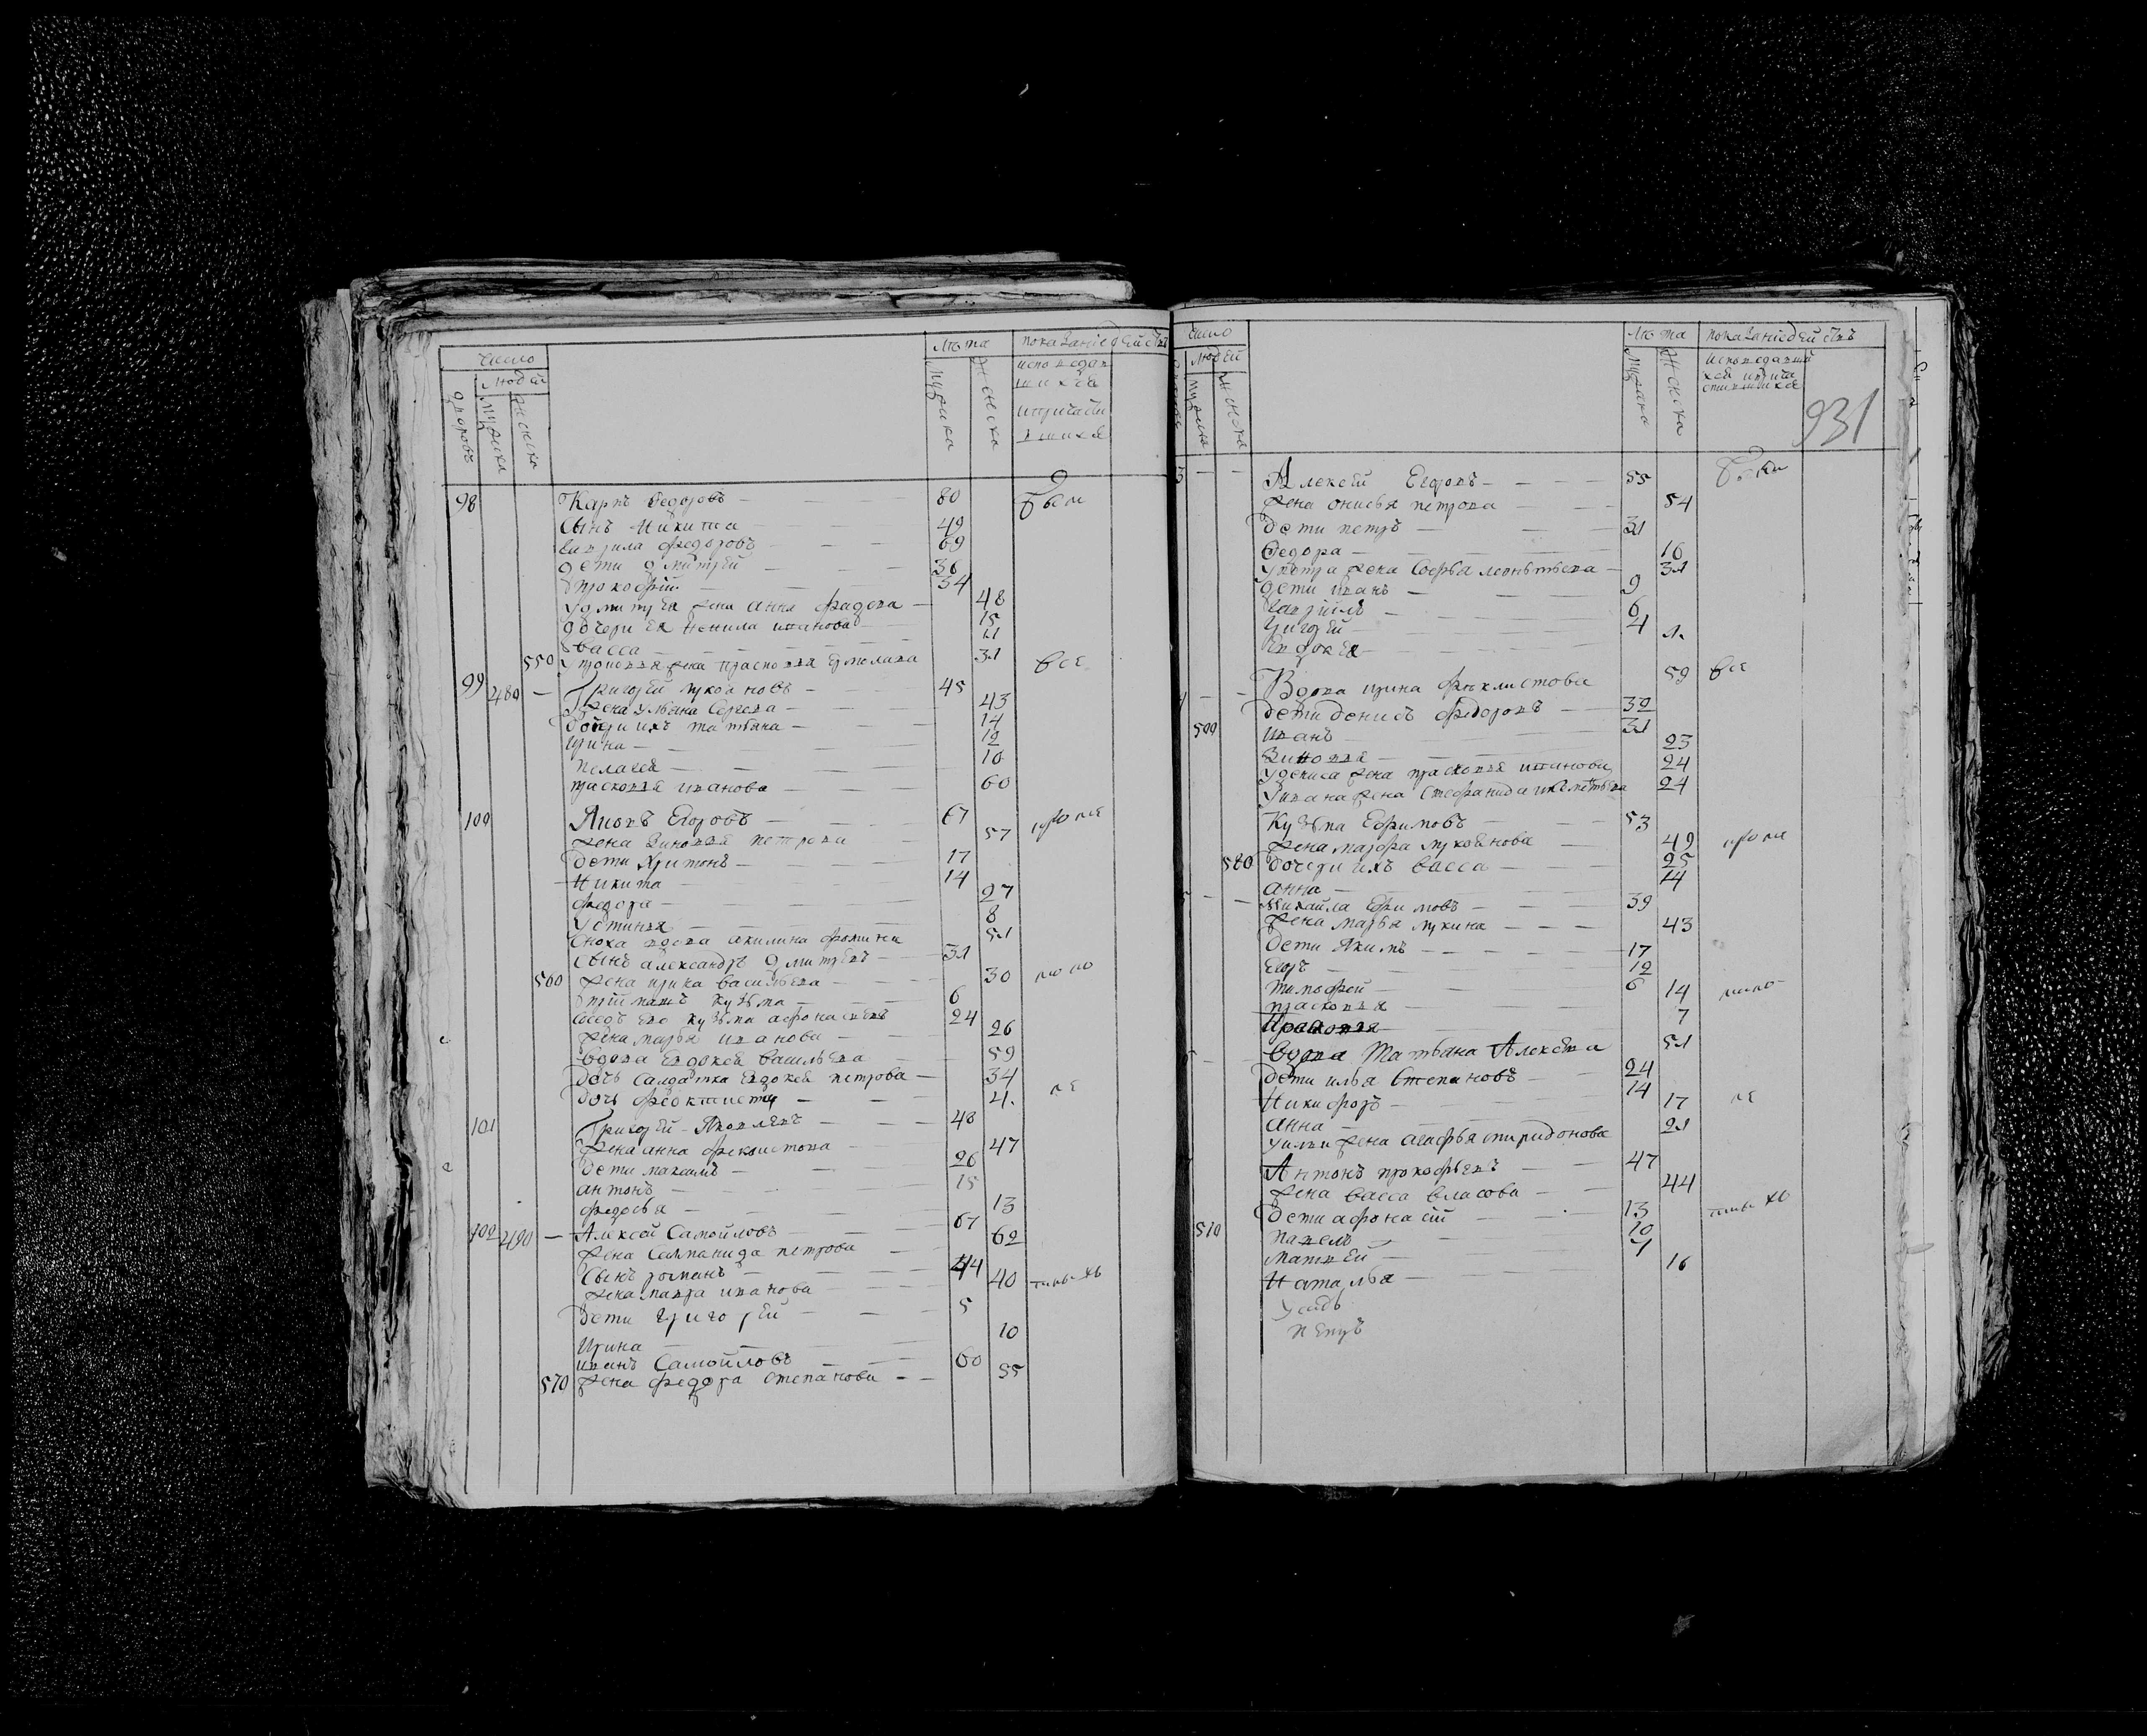 Число
Лѣта
Показанiе дѣйствъ
Людей
дворовъ
мужска
женска
мужска
женска
исповедав
шихся
ипричасти
вшихся
98 Карпъ Федоровъ 80 были
Сынъ Никита 49
Гаврила Федоровъ 69
дети дмитрей 36
прокофiй 34
удмитрея жена анна фадеева 48
дочери ея Ненила иванова 15
васса 11
550 упрокофья жена прасковья Ермолаева 31 все
99 480 Григорей лукояновъ 45
жена ульяна Сергеева 43
дочери ихъ татьяна 14
ирина 12
пелагея 10
прасковья иванова 60
100 Яковъ Егоровъ 67
жена Зиновья петрова 57
дети Харитонъ 17
Никита 14
федора 27
устинья 8
Сноха вдова акилина фомина 51
Сынъ александръ дмитревъ 31
560 жена ирина васильева 30
приимашъ кузьма 6
Соседъ Его кузьма афонасьевъ 24
жена марья иванова 26
вдова Евдокея васильева 59
дочь Салдатка Евдокея петрова 34
дочь феоктиста 4
101 Григорей Яковлевъ 48
жена анна феклистова 47
дети максимъ 26
антонъ 15
федосья 13
102 490 Алексей Самойловъ 67
жена Степанида петрова 62
Сынъ романъ 44
жена мавра иванова 40
дети григорей 5
Ирина 10
иванъ Самойловъ 60
570 жена федора Степанова 55
Число
Лѣта
Показанiе дѣйствъ
Людей
мужска
женска
мужска
женска
исповедавши
хся иприча
стившихся
931
3 Алексей Егоровъ 55
жена онисья петрова 54
дети петръ 31
Федора 16
упетра жена Софья леонтьева 31
дети иванъ 9
Гаврилъ 6
Григорей 4
Евдокея 1
4 Вдова ирина феклистова 59 все
дети денисъ федоровъ 32
500 иванъ 31
Зиновья 23
удениса жена прасковья иванова 24
Уивана жена Стефанида 24
Кузьма Ефимовъ 53
жена марфа лукоянова 49
580 дочери ихъ васса 25
анна 14
Михайла Ефимовъ 39
жена марья лукина 43
дети Якимъ 17
Егоръ 12
тимофей 6
прасковья 14
7
вдова Татьяна Алексеева 51
дети илья Степановъ 24
Никифоръ 14
анна 17
уильи жена агафья спиридонова 21
Антонъ прокофьевъ 47
жена васса власова 44
дети афонасiй 13
510 павелъ 10
матвей 4
Наталья 16